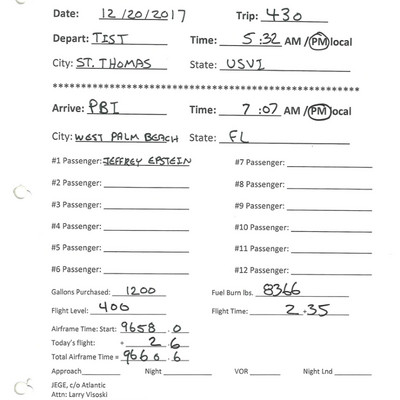 Date: 12/20/2017 Trip: 430
Depart: TIST Time: 5:32 AM / PM local
City: ST. THOMAS State: USVI
****************************************************************
Arrive: PBI Time: 7:07 AM / PM local
City: WEST PALM BEACH State: FL
#1 Passenger: JEFFREY EPSTEIN #7 Passenger:
#2 Passenger: #8 Passenger:
#3 Passenger: #9 Passenger:
#4 Passenger: #10 Passenger:
#5 Passenger: #11 Passenger:
#6 Passenger: #12 Passenger:
Gallons Purchased: 1200 Fuel Burn lbs. 8366
Flight Level: 400 Flight Time: 2+35
Airframe Time: Start: 9658.0
Today's flight: + 2.6
Total Airframe Time = 9660.6
Approach Night VOR Night Lnd
JEGE, c/o Atlantic
Attn: Larry Visoski